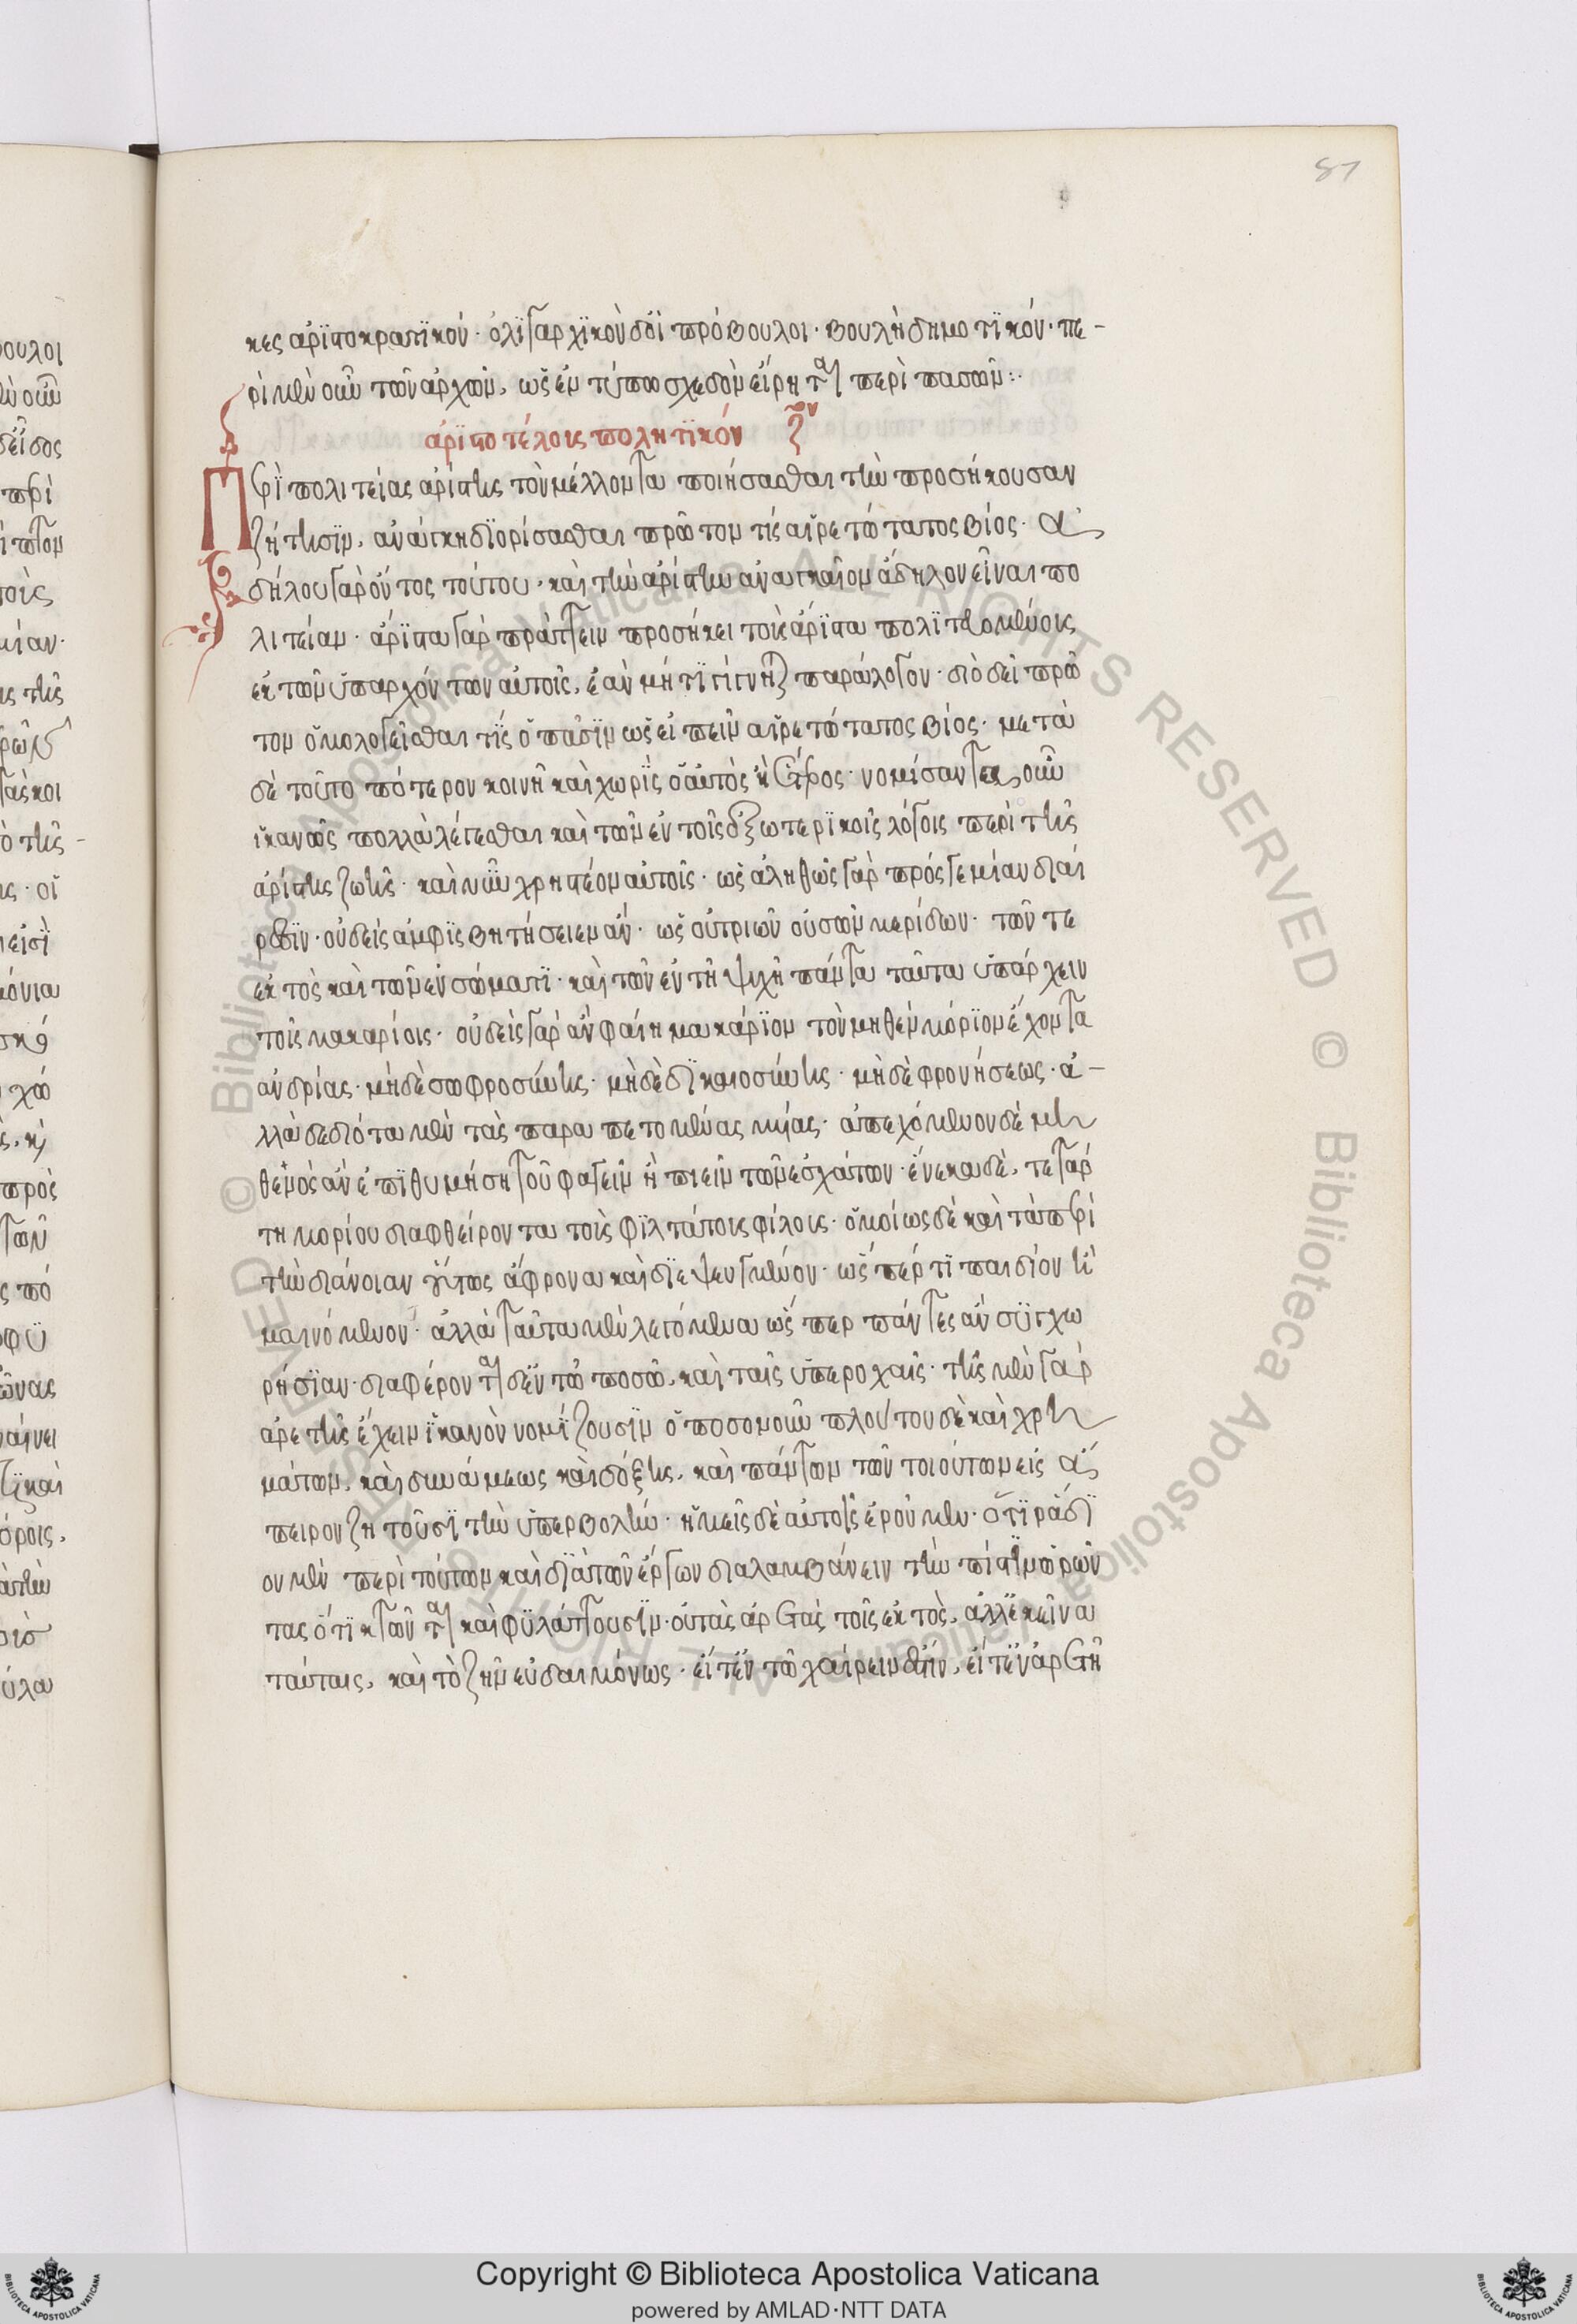 87
κες ἀριστοκρατικόν· ὀλιγαρχικὸν δ' οἱ πρόβουλοι· βουλὴ δημοτικόν· πε-
ρὶ μὲν οὖν τῶν ἀρχῶν, ὡς ἐν τύπω σχεδὸν εἴρηται περὶ πασῶν:·
ἀριστοτέλους πολητικόν
Περὶ πολιτείας ἀρίστης τὸν μέλλοντα ποιήσασθαι τὴν προσήκουσαν
ζήτησιν, ἀνάγκη διορίσασθαι πρῶτον τίς αἱρετώτατος βίος· ἀ
δήλου γὰρ ὄντος τούτου, καὶ τὴν ἀρίστην ἀναγκαῖον ἄδηλον εἶναι πο
λιτείαν· ἄριστα γὰρ πράττειν προσήκει τοὺς ἄριστα πολιτευομένους
ἐκ τῶν ὑπαρχόντων αὐτοῖς, ἐὰν μή τι γίγνηται παράλογον· διὸ δεῖ πρῶ
τον ὁμολογεῖσθαι τίς ὁ πᾶσιν ὡς εἰπεῖν αἱρετώτατος βίος· μετὰ
δὲ τοῦτο πότερον κοινῆ καὶ χωρὶς ὁ αὐτὸς ἢ ἕτερος· νομίσαντας οὖν
ἱκανῶς πολλὰ λέγεσθαι καὶ τῶν ἐν τοῖς ἐξωτερικοῖς λόγοις περὶ τῆς
ἀρίστης ζωῆς· καὶ νῦν χρηστέον αὐτοῖς· ὡς ἀληθῶς γὰρ πρός γε μίαν διαί
ρεσιν· οὐδεὶς ἀμφισβητήσειεν ἄν· ὡς οὐ τριῶν οὐσῶν μερίδων· τῶν τε
ἐκτὸς καὶ τῶν ἐν σώματι· καὶ τῶν ἐν τῆ ψυχῆ πάντα ταῦτα ὑπάρχειν
τοῖς μακαρίοις· οὐδεὶς γὰρ ἂν φαίη μακάριον τὸν μηθὲν μόριον ἔχοντα
ἀνδρίας· μὴδὲ σωφροσύνης· μὴδὲ δικαιοσύνης· μὴδὲ φρονήσεως· ἀ-
λλὰ δεδιότα μὲν τὰς παραπετομένας μυίας· ἀπεχόμενον δὲ μη
θενὸς ἂν ἐπιθυμήση τοῦ φαγεῖν ἢ πιεῖν τῶν ἐσχάτων· ἕνεκα δὲ, τεταρ
τημορίου διαφθείροντα τοὺς φιλτάτους φίλους· ὁμοίως δὲ καὶ τὰ περὶ
τὴν διάνοιαν οὕτως ἄφρονα καὶ διεψευσμένον· ὥσπέρ τι παιδίον ἢ
μαινόμενον· ἀλλὰ ταῦτα μὲν λεγόμενα ὥσπερ πάντες ἂν συγχω
ρήσιαν· διαφέρονται δ' ἐν τῶ ποσῶ, καὶ ταῖς ὑπεροχαῖς· τῆς μὲν γὰρ
ἀρετῆς ἔχειν ἱκανὸν νομίζουσιν ὁποσονοῦν πλούτου δὲ καὶ χρη
μάτων, καὶ δυνάμεως καὶ δόξης, καὶ πάντων τῶν τοιούτων εἰς ἄ
πειρον ζητοῦσι τὴν ὑπερβολήν· ἡμεῖς δὲ αὐτοῖς ἐροῦμεν· ὅτι ράδι
ον μὲν περὶ τούτων καὶ διὰ τῶν ἔργων διαλαμβάνειν τὴν πίστιν ὁρῶν
τας ὅτι κτῶνται καὶ φυλάττουσιν· οὐ τὰς ἀρετὰς τοῖς ἐκτὸς, ἀλλ' ἐκεῖνα
ταύταις, καὶ τὸ ζῆν εὐδαιμόνως· εἴτ' ἐν τῶ χαίρειν ἐστίν, εἴτ' ἐν ἀρετῆ
Copyright © Biblioteca Apostolica Vaticana
powered by AMLAD·NTT DATA